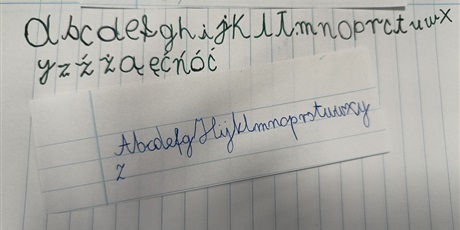 a b c d e f g h i j k l ł m n o p r c t u w x
y z ź ż ą ę ć ń ó ć
AbcdefgHijklmnoprstuwxy
z